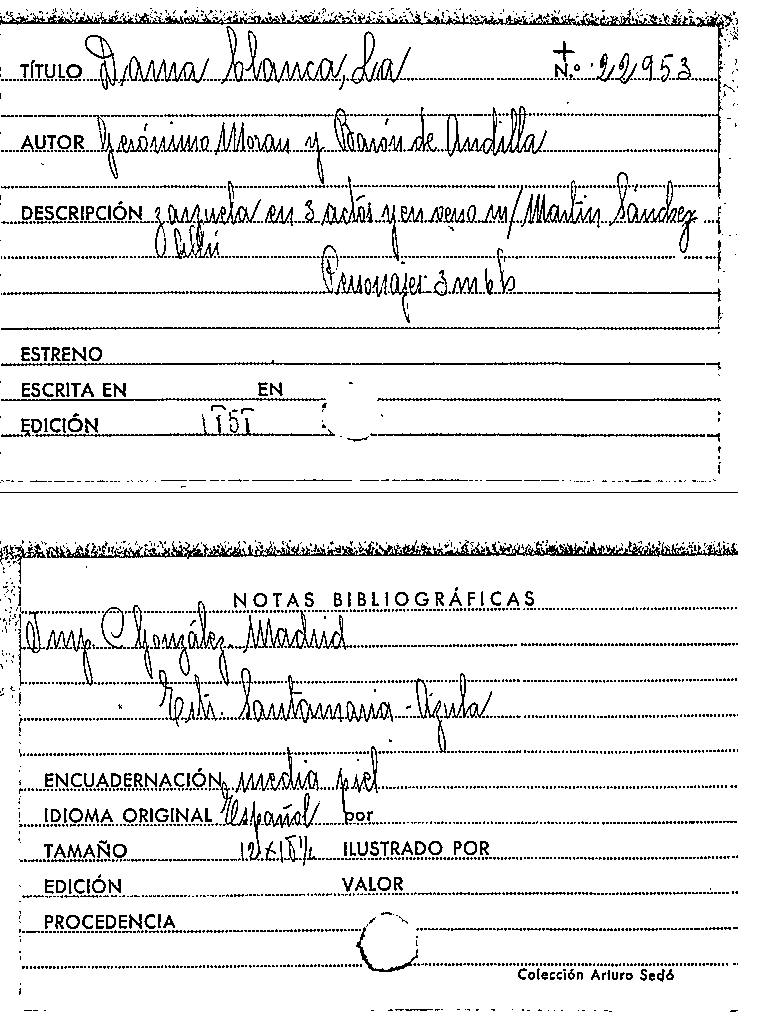 TÍTULO Dama blanca, La + N.º 22953
AUTOR Gerónimo Moran y Barón de Andilla
DESCRIPCIÓN zarzuela en 3 actos y en verso m/ Martin Sánchez
Allú
Personajes 3 m 6 h
ESTRENO
ESCRITA EN EN
EDICIÓN
NOTAS BIBLIOGRÁFICAS
Imp C González. Madrid
Santamaria -
ENCUADERNACIÓN media piel
IDIOMA ORIGINAL Español por
TAMAÑO ILUSTRADO POR
EDICIÓN VALOR
PROCEDENCIA
Colección Arturo Sedó